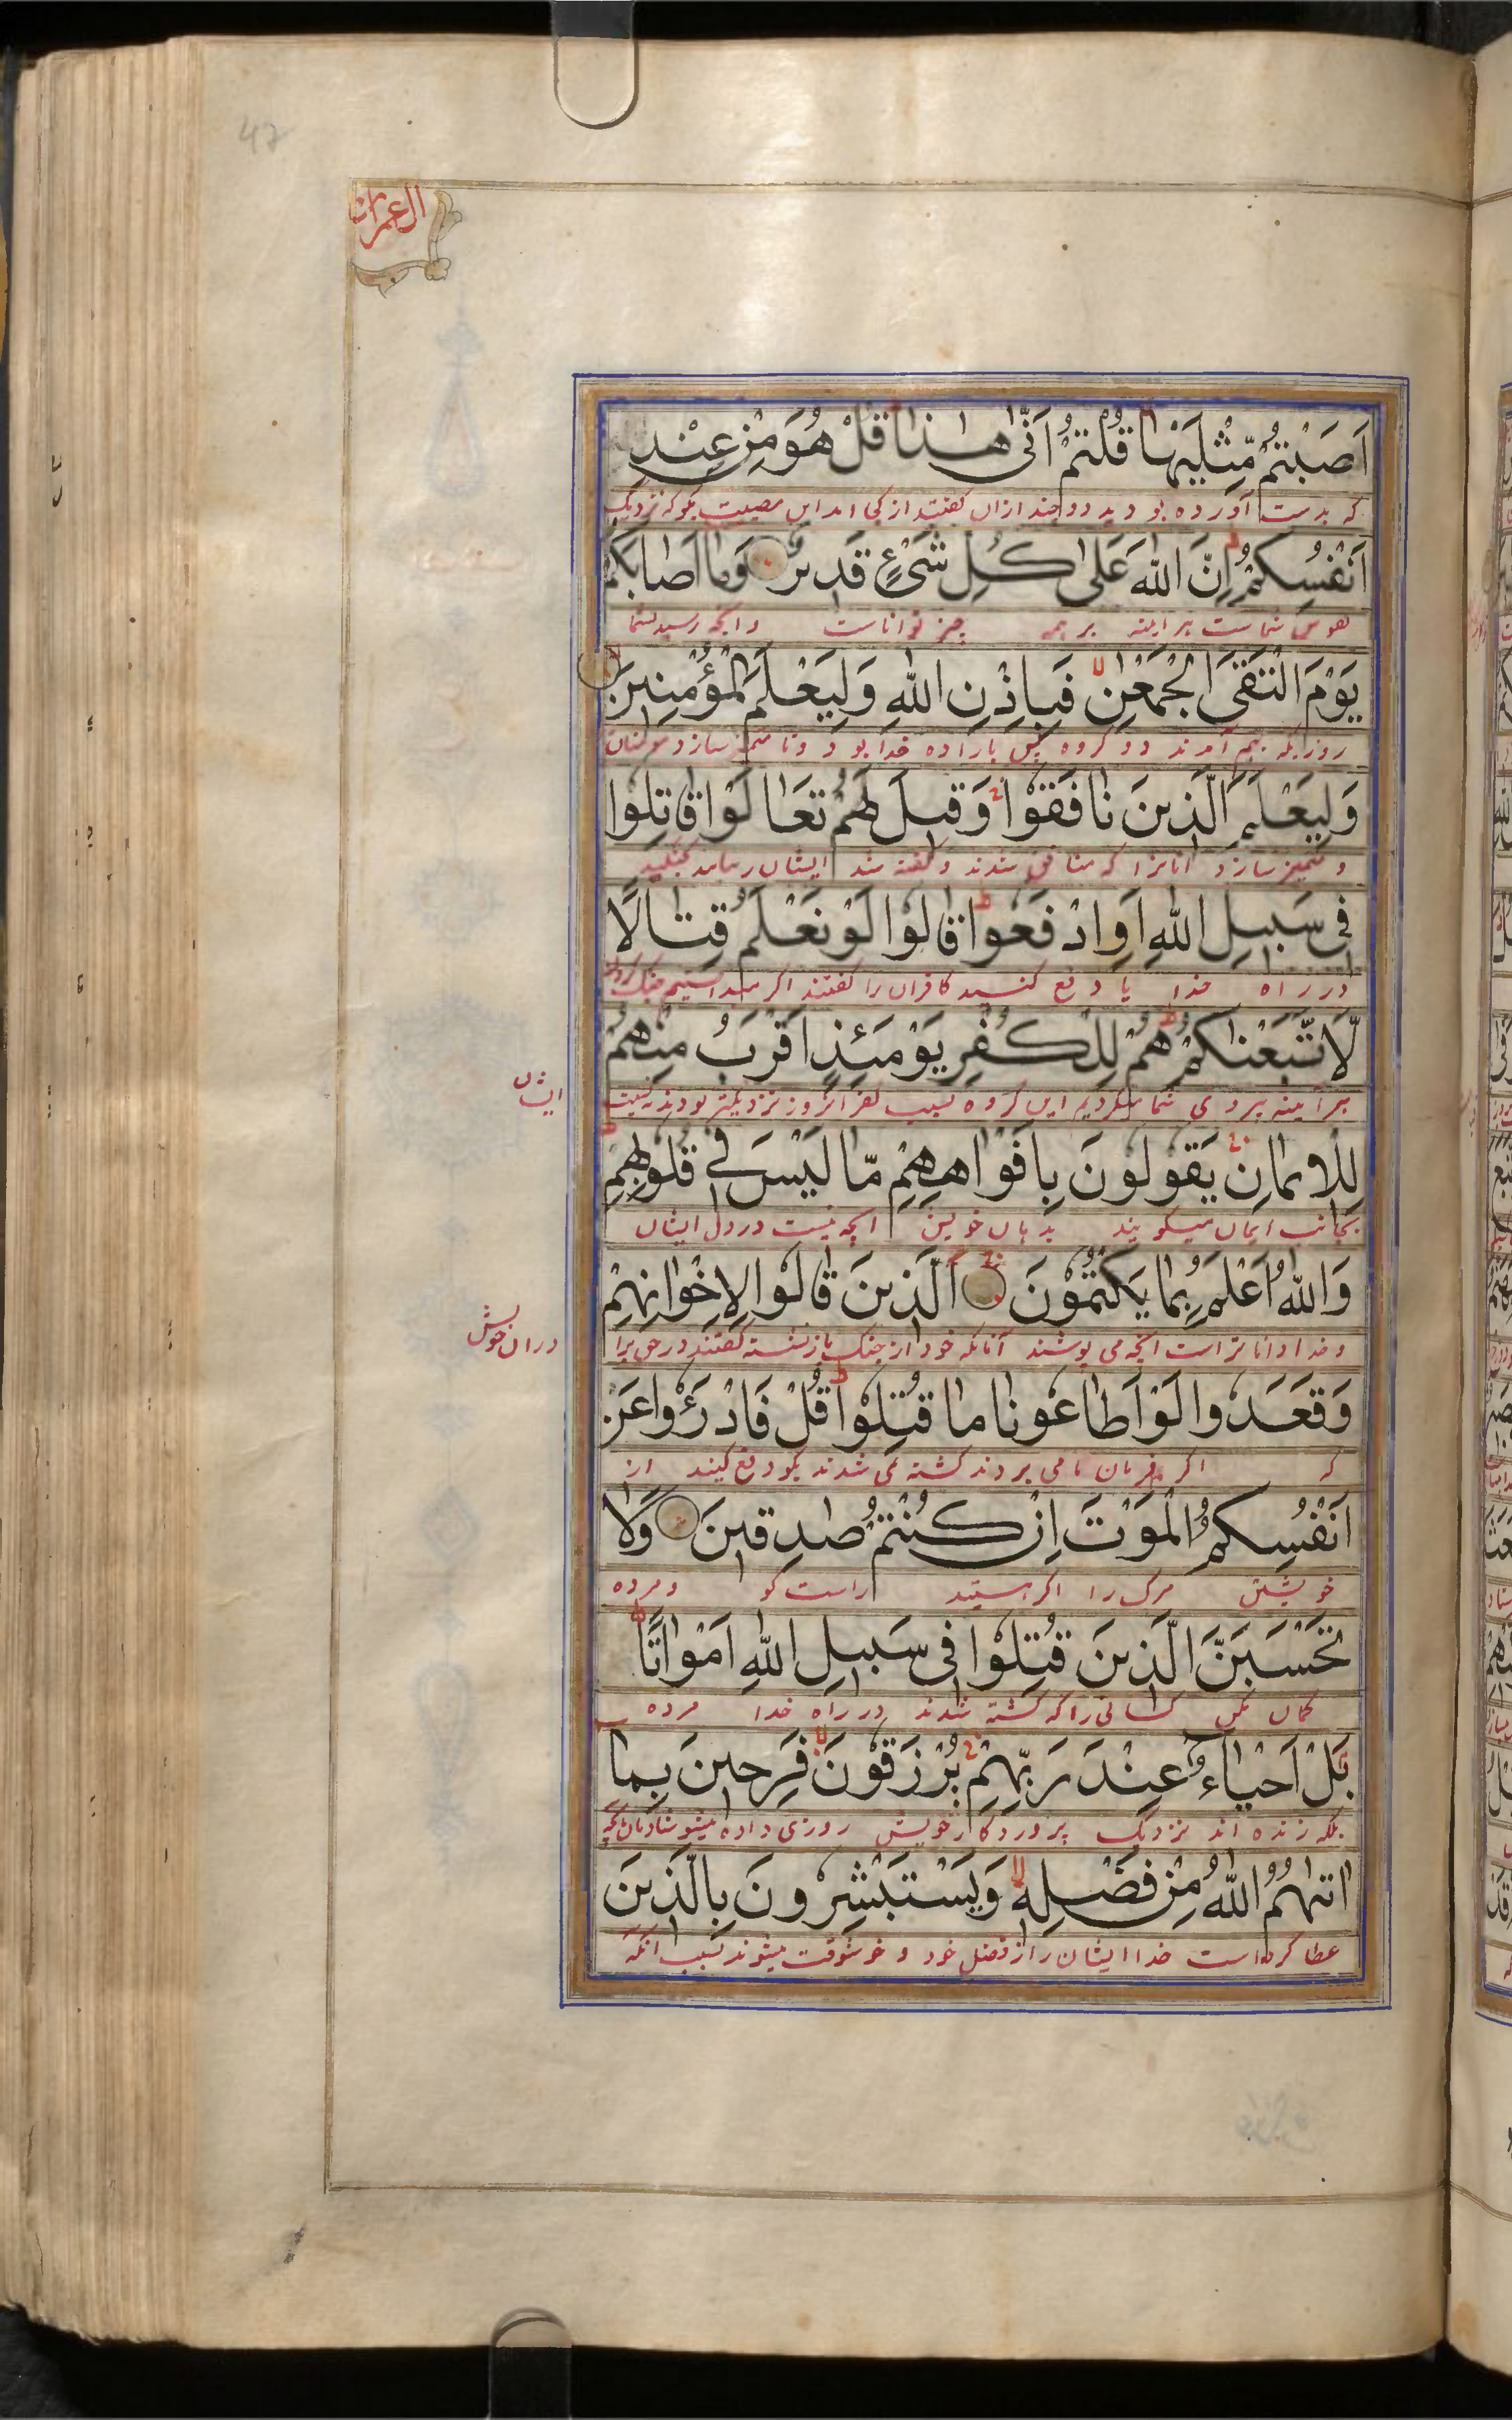 47
ال عمران
اَصَبْتُمْ مِّثْلَيْهَا قُلْتُمْ اَنّٰى هٰذَا قُلْ هُوَ مِنْ عِنْدِ
که بدست آورده بودید دو چند ازان گفتید از کجا امد این مصیبت بگو که نزدیک
اَنْفُسِكُمْ اِنَّ اللّٰهَ عَلٰى كُلِّ شَىْءٍ قَدِيْرٌ وَمَا اَصَابَكُمْ
نفوس شماست هر اینه بر همه چیز تواناست وانچه رسید بشما
يَوْمَ الْتَقَى الْجَمْعٰنِ فَبِاِذْنِ اللّٰهِ وَلِيَعْلَمَ الْمُؤْمِنِيْنَ
روزیکه بهم آمدند دو گروه پس باراده خدا بود و تا متمیز سازد مومنان
وَلِيَعْلَمَ الَّذِيْنَ نَافَقُوْا وَقِيْلَ لَهُمْ تَعَالَوْا قَاتِلُوْا
و متمیز سازد انانرا که منافق شدند و گفته شد ایشان را بیایید بجنگید
فِىْ سَبِيْلِ اللّٰهِ اَوِ ادْفَعُوْا قَالُوْا لَوْ نَعْلَمُ قِتَالًا
در راه خدا یا دفع کنید کافران را گفتند اگر میدانستیم جنک کردن
لَّاتَّبَعْنٰكُمْ هُمْ لِلْكُفْرِ يَوْمَئِذٍ اَقْرَبُ مِنْهُمْ
هر آیینه پیروی شما میکردیم این گروه بسبب کفر انروز نزدیکتر بودند به نسبت
ایشان
لِلْاِيْمَانِ يَقُوْلُوْنَ بِاَفْوَاهِهِمْ مَّا لَيْسَ فِىْ قُلُوْبِهِمْ
بجانب ایمان میگویند بدهان خویش انچه نیست در دل ایشان
وَاللّٰهُ اَعْلَمُ بِمَا يَكْتُمُوْنَ اَلَّذِيْنَ قَالُوْا لِاِخْوَانِهِمْ
و خدا داناتر است انچه می پوشند آنانکه خود از جنک باز نشسته گفتند در حق برا
دران خویش
وَقَعَدُوْا لَوْ اَطَاعُوْنَا مَا قُتِلُوْا قُلْ فَادْرَءُوْا عَنْ
که اگر فرمان ما می بردند کشته نمی شدند بگو دفع کنید از
اَنْفُسِكُمُ الْمَوْتَ اِنْ كُنْتُمْ صٰدِقِيْنَ وَلَا
خویشتن مرگ را اگر استید راست گو و مرده
تَحْسَبَنَّ الَّذِيْنَ قُتِلُوْا فِىْ سَبِيْلِ اللّٰهِ اَمْوَاتًا
گمان مکن کسانی را که کشته شدند در راه خدا مرده
بَلْ اَحْيَاءٌ عِنْدَ رَبِّهِمْ يُرْزَقُوْنَ فَرِحِيْنَ بِمَا
بلکه زنده اند نزدیک پروردگار خویش روزی داده میشوند شادمان بانچه
اٰتٰىهُمُ اللّٰهُ مِنْ فَضْلِهٖ وَيَسْتَبْشِرُوْنَ بِالَّذِيْنَ
عطا کرده است خدا ایشان را از فضل خود و خوشوقت میشوند بسبب انکه